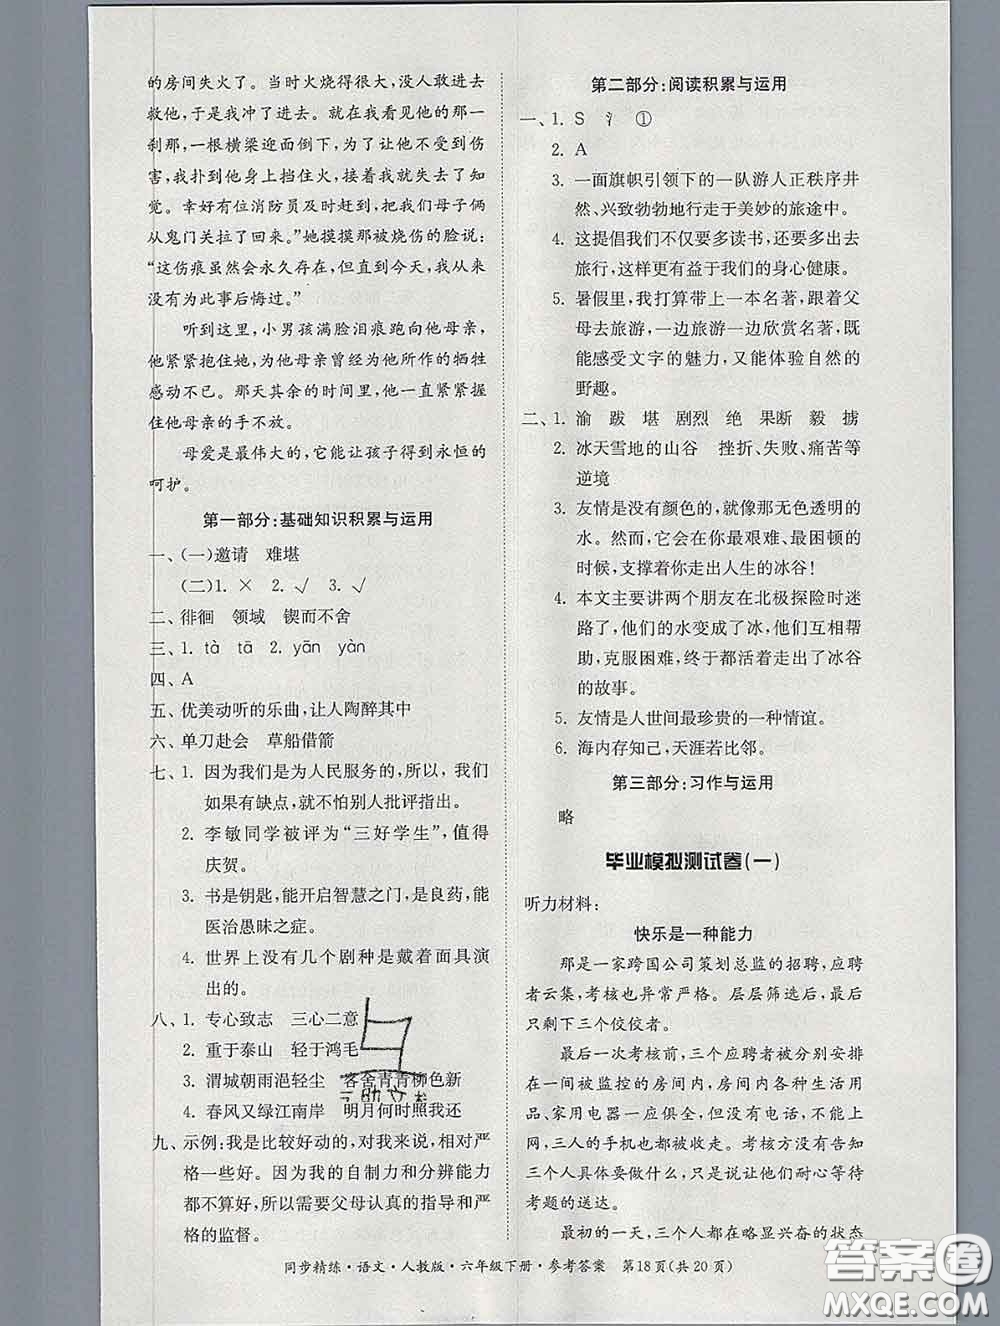 的房间失火了。当时火烧得很大,没人敢进去
救他,于是我冲了进去。就在我看见他的那一
刹那,一根横梁迎面倒下,为了让他不受到伤
害,我扑到他身上挡住火,接着我就失去了知
觉。幸好有位消防员及时赶到,把我们母子俩
从鬼门关拉了回来。”她摸摸那被烧伤的脸说:
“这伤痕虽然会永久存在,但直到今天,我从来
没有为此事后悔过。”
听到这里,小男孩满脸泪痕跑向他母亲,
他紧紧抱住她,为他母亲曾经为他所作的牺牲
感动不已。那天其余的时间里,他一直紧紧握
住他母亲的手不放。
母爱是最伟大的,它能让孩子得到永恒的
呵护。
第一部分:基础知识积累与运用
一、(一)邀请 难堪
(二)1. × 2. √ 3. √
二、徘徊 领域 锲而不舍
三、1. tà tā 2. yān yàn
四、A
五、优美动听的乐曲,让人陶醉其中
六、单刀赴会 草船借箭
七、1. 因为我们是为人民服务的,所以,我们
如果有缺点,就不怕别人批评指出。
2. 李敏同学被评为“三好学生”,值得
庆贺。
3. 书是钥匙,能开启智慧之门,是良药,能
医治愚昧之症。
4. 世界上没有几个剧种是戴着面具演
出的。
八、1. 专心致志 三心二意
2. 重于泰山 轻于鸿毛
3. 渭城朝雨浥轻尘 客舍青青柳色新
4. 春风又绿江南岸 明月何时照我还
九、示例:我是比较好动的,对我来说,相对严
格一些好。因为我的自制力和分辨能力
都不算好,所以需要父母认真的指导和严
格的监督。
第二部分:阅读积累与运用
一、1. S 氵 ①
2. A
3. 一面旗帜引领下的一队游人正秩序井
然、兴致勃勃地行走于美妙的旅途中。
4. 这提倡我们不仅要多读书,还要多出去
旅行,这样更有益于我们的身心健康。
5. 暑假里,我打算带上一本名著,跟着父
母去旅游,一边旅游一边欣赏名著,既
能感受文字的魅力,又能体验自然的
野趣。
二、1. 渝 跋 堪 剧烈 绝 果断 毅 掳
2. 冰天雪地的山谷 挫折、失败、痛苦等
逆境
3. 友情是没有颜色的,就像那无色透明的
水。然而,它会在你最艰难、最困顿的
时候,支撑着你走出人生的冰谷!
4. 本文主要讲两个朋友在北极探险时迷
路了,他们的水变成了冰,他们互相帮
助,克服困难,终于都活着走出了冰谷
的故事。
5. 友情是人世间最珍贵的一种情谊。
6. 海内存知己,天涯若比邻。
第三部分:习作与运用
略
毕业模拟测试卷(一)
听力材料:
快乐是一种能力
那是一家跨国公司策划总监的招聘,应聘
者云集,考核也异常严格。层层筛选后,最后
只剩下三个佼佼者。
最后一次考核前,三个应聘者被分别安排
在一间被监控的房间内,房间内各种生活用
品、家用电器一应俱全,但没有电话,不能上
网,三人的手机也都被收走。考核方没有告知
三个人具体要做什么,只是说让他们耐心等待
考题的送达。
最初的一天,三个人都在略显兴奋的状态
同步精练·语文·人教版·六年级下册·参考答案 第18页(共20页)
答案圈
MXQE.COM